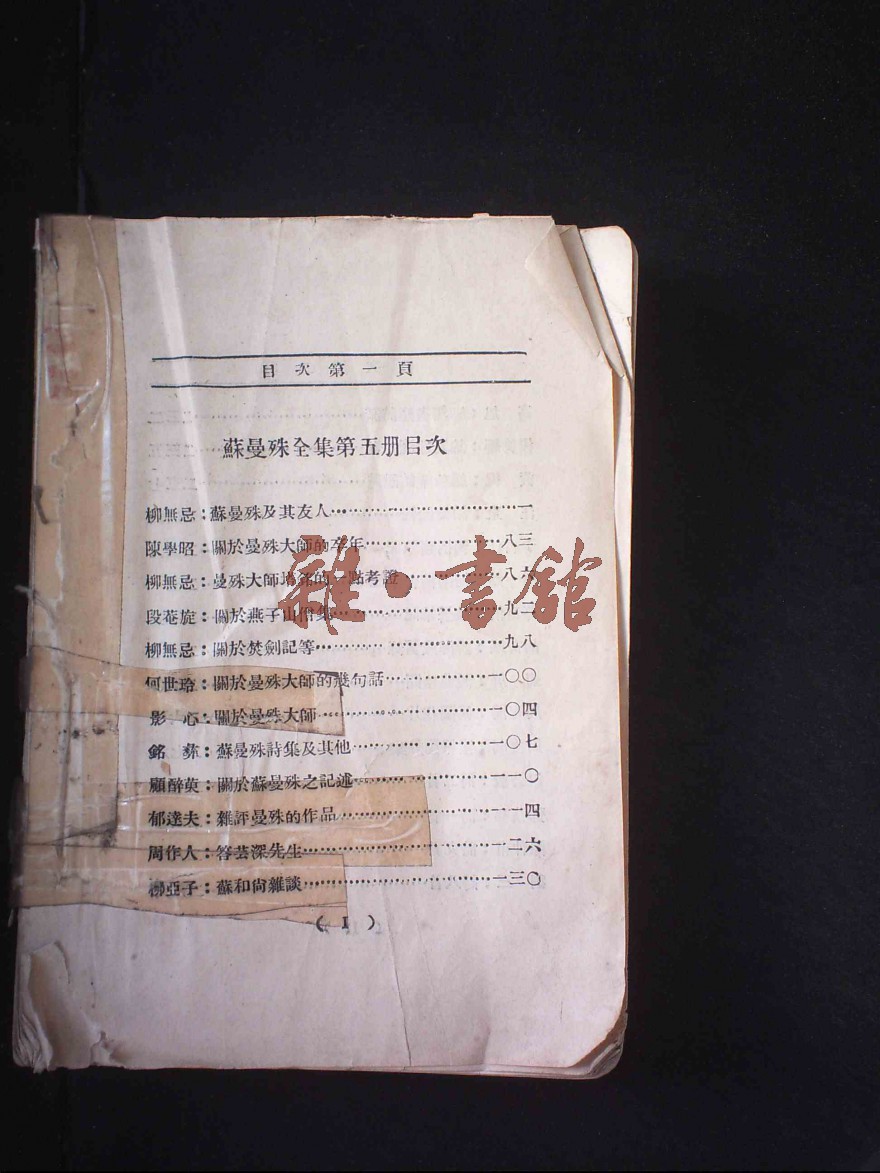 目次第一頁
蘇曼殊全集第五册目次
柳無忌：蘇曼殊及其友人…………………一
陳學昭：關於曼殊大師的卒年…………………八三
柳無忌：曼殊大師塔銘的一點考證…………………八六
段菴旋：關於燕子山僧集…………………九二
柳無忌：關於焚劍記等…………………九八
何世玲：關於曼殊大師的幾句話…………………一〇〇
影　心：關於曼殊大師…………………一〇四
銘　彝：蘇曼殊詩集及其他…………………一〇七
顧醉萸：關於蘇曼殊之記述…………………一一〇
郁達夫：雜評曼殊的作品…………………一一四
周作人：答芸深先生…………………一二六
柳亞子：蘇和尙雜談…………………一三〇
( I )
雜·書舘